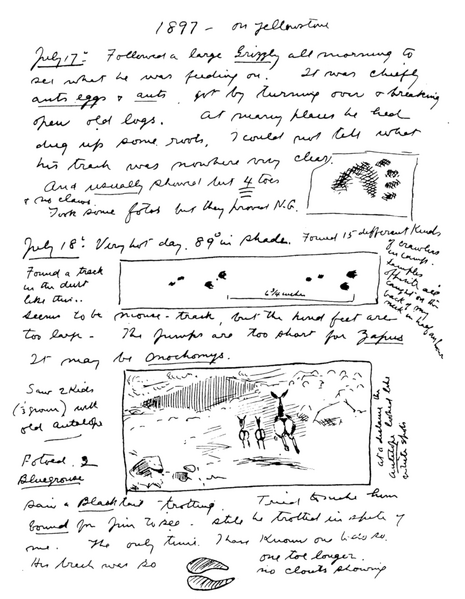 1897 – on Yellowstone
July 17th Followed a large Grizzly all morning to
see what he was feeding on. It was chiefly
ants eggs & ants, got by turning over & breaking
open old logs. At many places he had
dug up some roots, I could not tell what
his track was nowhere very clear.
And usually showed but 4 toes
& no claws.
Took some fotos but they proved N.G.
July 18th Very hot day. 89° in shade. Found 15 different Kinds
of crawlers
in camp.
Samples
opposite all
caught on the
back of my
neck in half an hour
Found a track
in the dust
like this..
6 3/4 inches
seems to be mouse-track, but the hind feet are
too large – The jumps are too short for Zapus
It may be Onochomys.
Saw 2 Kids
(⅓ grown) with
old antelope
at a distance the
antelope looked like
white spots
Fotoed 2
Bluegrouse
Saw a Blacktail – trotting. Tried to make him
bound for Jim to see. Still he trotted in spite of
me. The only time I have Known one to do so.
His track was so
one toe longer.
no clouts showing